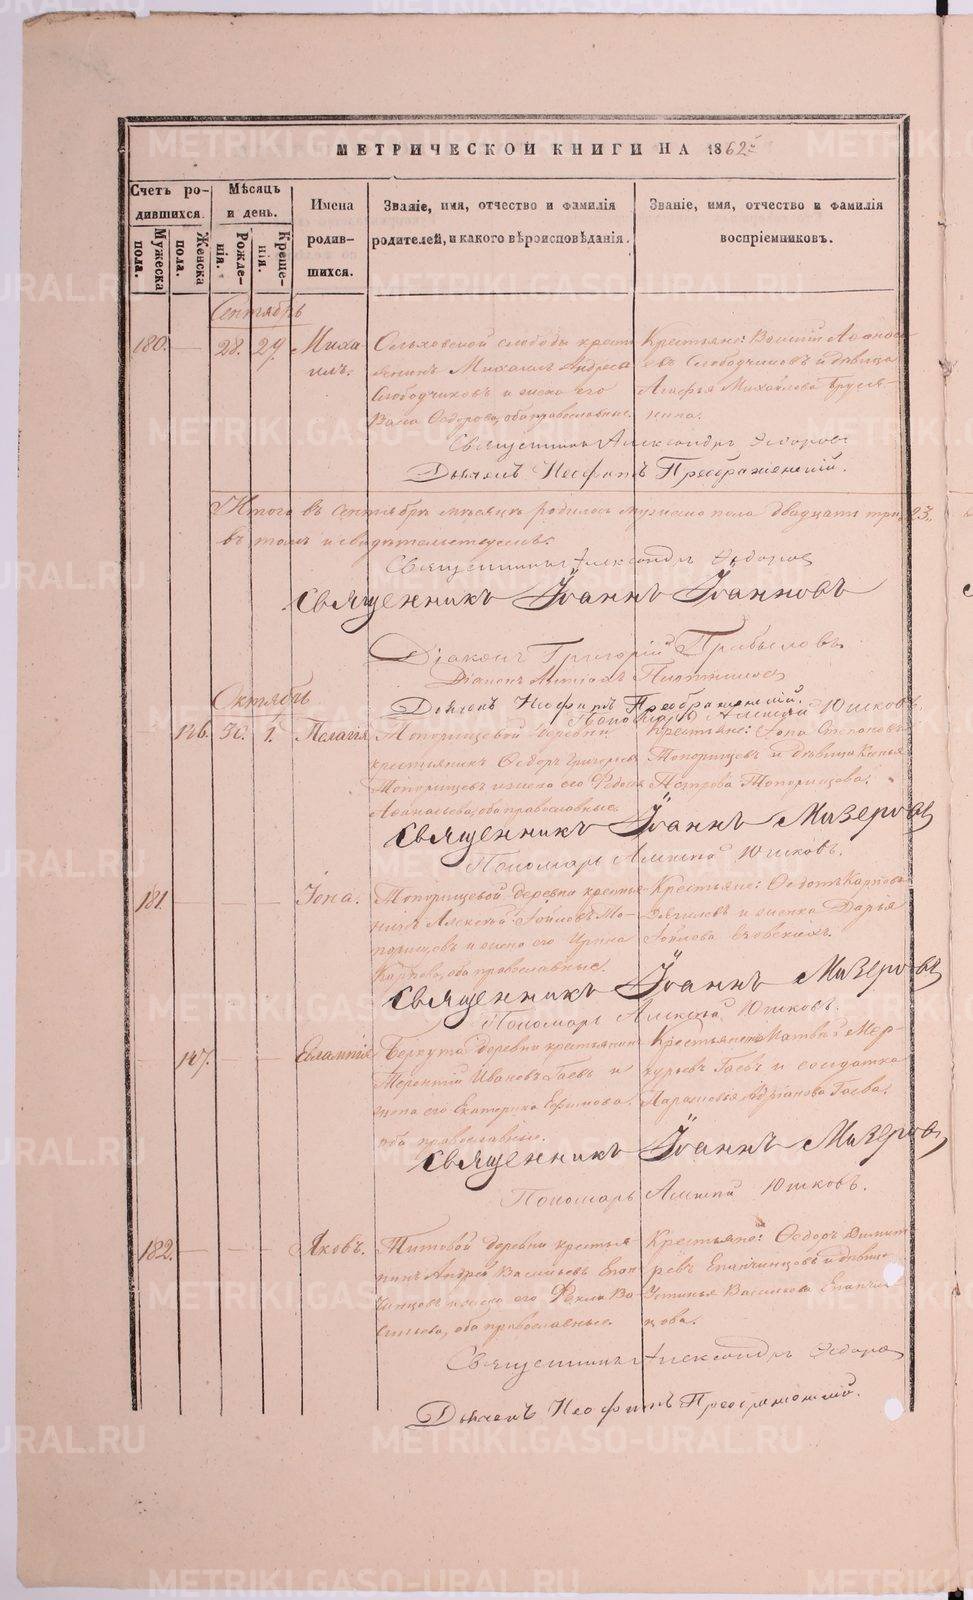 МЕТРИЧЕСКОЙ КНИГИ НА 1862
Счетъ родившихся.
Мужеска пола.
Женска пола.
Мѣсяцъ и день.
Рожденія.
Крещенія.
Имена родившихся.
Званіе, имя, отчество и фамилія
родителей, и какого вѣроисповѣданія.
Званіе, имя, отчество и фамилія
воспріемниковъ.
Сентябрь
180. 28. 29. Михаилъ.
слободы крестьянинъ Михаилъ
Слободчиковъ и жена его
Ѳедорова, оба православные.
Крестьяне:
Слободчиковъ и дѣвица
Агафья Михайлова
Священникъ Александръ Ѳедоровъ
Дьячекъ Неофитъ Преображенскій.
Итого въ сентябрѣ мѣсяцѣ родилось мужеска пола двадцать три, 23.
въ томъ и свидѣтельствуемъ.
Священникъ Александръ Ѳедоровъ
Священникъ Іоаннъ Іоанновъ
Діаконъ Григорій
Діаконъ
Дьячекъ Неофитъ Преображенскій.
Пономарь Алексѣй Юшковъ.
Октябрь
146. 30. 1. Пелагія
Топорищевой деревни
крестьянинъ Ѳедоръ Григорьевъ
Топорищевъ и жена его Ѳедосья
Аѳанасьева, оба православные.
Крестьяне: Степановъ
Топорищевъ и дѣвица Ксенья
Петрова Топорищева.
Священникъ Іоаннъ Мизеровъ
Пономарь Алексѣй Юшковъ.
181. Іона.
Топорищевой деревни крестьянинъ Алексѣй
Топорищевъ и жена его Ирина
Карпова, оба православные.
Крестьяне: Ѳедотъ Карповъ
и женка Дарья
Священникъ Іоаннъ Мизеровъ
Пономарь Алексѣй Юшковъ.
147. Евлампія
Беркута деревни крестьянинъ
Терентій Ивановъ Гаевъ и
жена его Екатерина Ефимова.
оба православные.
Крестьянинъ Матвѣй Меркурьевъ Гаевъ и солдатка
Парасковья Адріанова Гаева.
Священникъ Іоаннъ Мизеровъ
Пономарь Алексѣй Юшковъ.
182. Яковъ.
Титовой деревни крестьянинъ Андрей Васильевъ Епанчинцовъ и жена его Ѳекла Васильева, оба православные.
Крестьяне: Ѳедоръ Димитріевъ Епанчинцовъ и дѣвица
Устинья Васильева Епанчинцова.
Священникъ Александръ Ѳедоровъ
Дьячекъ Неофитъ Преображенскій.
METRIKI.GASO-URAL.RU